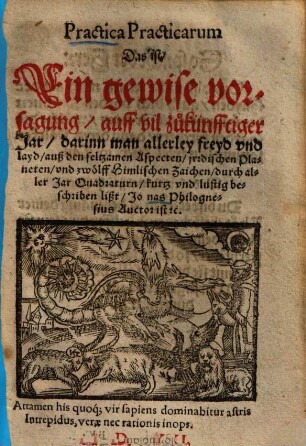 Practica Practicarum
Das ist/
Ein gewise vor-
sagung / auff vil zůkünfftiger
Jar / darinn man allerley freyd vnd
layd / auß den seltzamen Aspecten / jrrdischen Pla-
neten / vnd zwölff Himlischen Zaichen / durch al-
ler Jar Quadraturn / kurtz vnd lustig be-
schriben lißt / Jo nas Philogne-
sius Auctor ist ꝛc.
Attamen his quoqꝫ vir sapiens dominabitur astris
Intrepidus, veræ nec rationis inops.